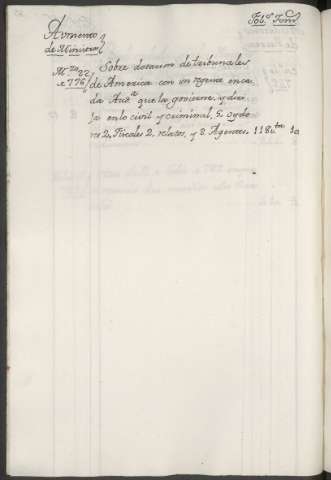 Fol.s Tom.s
Aumento
de Ministros
M.zo 22
e 776
Sobre dotacion de tribunales
de America con un regente en ca
da Aud.a que la govierne, y diri
ja en lo civil y criminal, 5. oydo
res 2, Fiscales 2. relator, y 2 Agentes. 118 10